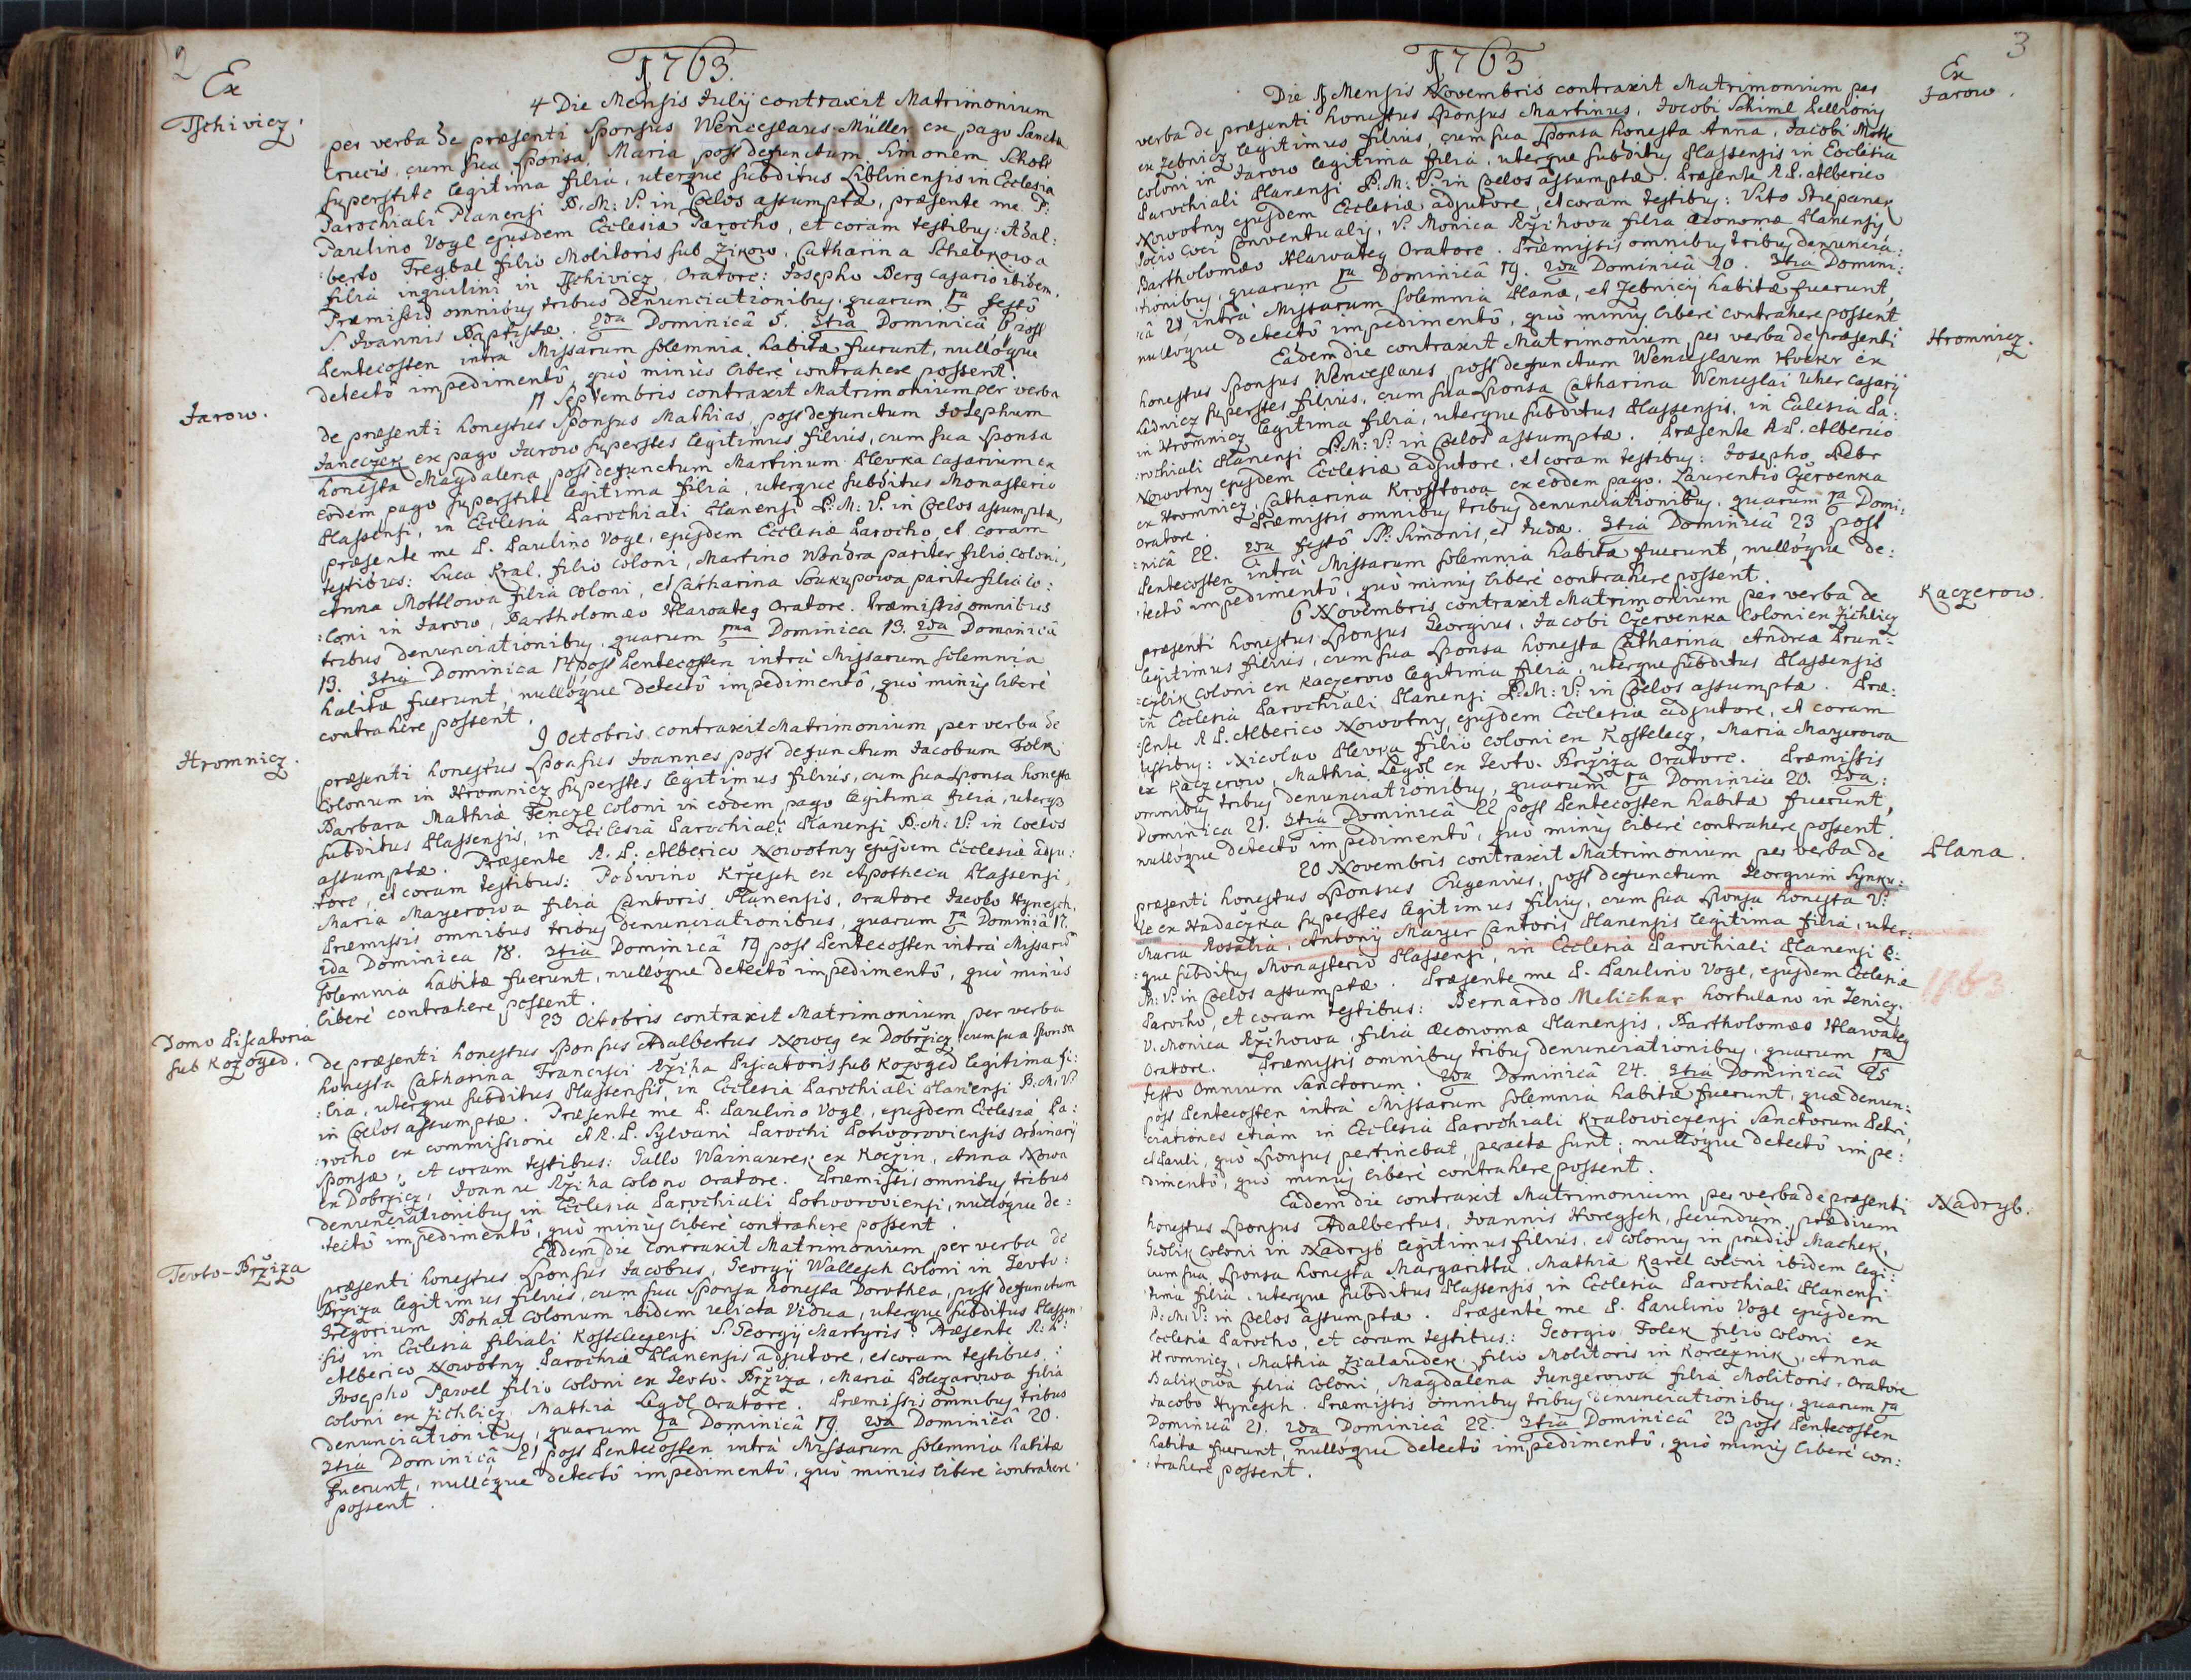 2
1763.
Ex
Tschivicz.
4 Die Mensis Julij contraxit Matrimonium
per verba de præsenti Sponsus Wenceslaus Müller ex pago Sanctæ
Crucis, cum sua Sponsa Maria post defunctum Simonem Schott
superstite legitima filia, uterque subditus Liblinensis in Ecclesia
Parochiali Planensi B:M:V: in Cœlos assumptæ, præsente me P:
Paulino Vogl ejusdem Ecclesiæ Parocho, et coram testibus: Adal:
:berto Fregbal filio Molitoris sub Žikow, Catharina Schebkowa
filia inquilini in Tschivicz, Oratore: Josepho Berg casario ibidem.
Præmissis omnibus tribus denunciationibus, quarum 1a festô
S. Joannis Baptistæ. 2da Dominicâ 5. 3tia Dominicâ 6 post
Pentecosten intra Missarum solemnia habitæ fuerunt, nullôque
detectô impedimentô, quô minùs liberè contrahere possent.
Jarow.
11 Septembris contraxit Matrimonium per verba
de præsenti honestus Sponsus Mathias, post defunctum Josephum
Janeczek ex pago Jarow superstes legitimus filius, cum sua Sponsa
honesta Magdalena post defunctum Martinum Slevka casarium ex
eodem pago superstite legitima filia, uterque subditus Monasterio
Plassensi, in Ecclesia Parochiali Planensi B:M:V: in Cœlos assumptæ,
præsente me P. Paulino Vogl, ejusdem Ecclesiæ Parocho, et coram
testibus: Luca Kral filio coloni, Martino Wondra pariter filio coloni,
Anna Mottlowa filia coloni, et Catharina Soukupowa pariter filia co:
:loni in Jarow, Bartholomæo Hlawateg Oratore. Præmissis omnibus
tribus denunciationibus, quarum 1ma Dominica 13. 2da Dominicâ
13. 3tia Dominica 14 post Pentecosten intra Missarum solemnia
habitæ fuerunt, nullôque detectô impedimentô, quô minùs liberè
contrahere possent.
Hromnicz.
9 Octobris contraxit Matrimonium per verba de
præsenti honestus Sponsus Joannes post defunctum Jacobum Folk
Colonum in Hromnicz superstes legitimus filius, cum sua Sponsa honesta
Barbara Mathiæ Fenczl coloni in eodem pago legitima filia, uterqz
subditus Plassensis, in Ecclesia Parochiali Planensi B:M:V: in Cœlos
assumptæ. Præsente R. P: Alberico Nowotny ejusdem Ecclesiæ adju:
:tore, et coram testibus: Podivino Kržesch ex Apotheca Plassensi,
Maria Mayerowa filia Cantoris Planensis, Oratore Jacobo Hynesch.
Præmissis omnibus tribus denunciationibus, quarum 1a Dominicâ 17.
2da Dominica 18. 3tia Dominicâ 19 post Pentecosten intra Missarum
solemnia habitæ fuerunt, nullôque detectô impedimentô, quô minùs
liberè contrahere possent.
Domo Piscatoria
sub Kozoged.
23 Octobris contraxit Matrimonium per verba
de præsenti honestus Sponsus Adalbertus Noweg ex Dobržicz, cum sua Sponsa
honesta Catharina Francisci Ržiha Piscatoris sub Kozoged legitima fi:
:lia, uterque subditus Plassensis, in Ecclesia Parochiali Planensi B:M:V:
in Cœlos assumptæ. Præsente me P. Paulino Vogl, ejusdem Ecclesiæ Pa:
:rocho ex commissione A.R.P. Sylvani Parochi Potworoviensis Ordinarij
Sponsæ, et coram testibus: Gallo Warnaurek ex Koczin, Anna Nowa
ex Dobržicz, Joanne Ržiha colono Oratore. Præmissis omnibus tribus
denunciationibus in Ecclesia Parochiali Potworoviensi, nullôque de:
:tectô impedimentô, quô minùs liberè contrahere possent.
Tevto-Bržiza
Eadem die contraxit Matrimonium per verba de
præsenti honestus Sponsus Jacobus, Georgij Wallesch coloni in Tevto:
Bržiza legitimus filius, cum sua Sponsa honesta Dorothea, post defunctum
Gregorium Bohat Colonum ibidem relicta Vidua, uterque subditus Plassen:
:sis in Ecclesia filiali Kostelezensi S. Georgij Martyris. Præsente R: P:
Alberico Nowotny Parochiæ Planensis adjutore, et coram testibus:
Josepho Pawel filio coloni ex Tevto-Bržiza, Maria Polczarowa filia
coloni ex Zichlicz, Mathia Legdl Oratore. Præmissis omnibus tribus
denunciationibus, quarum 1a Dominicâ 19. 2da Dominicâ 20.
3tia Dominicâ 21 post Pentecosten intra Missarum solemnia habitæ
fuerunt, nullôque detectô impedimentô, quô minùs liberè contrahere
possent.
3
1763
Ex
Jarow.
Die 1 Mensis Novembris contraxit Matrimonium per
verba de præsenti honestus Sponsus Martinus, Jacobi Schiml Pellionis
ex Zebnicz legitimus filius, cum sua Sponsa honesta Anna, Jacobi Mottl
coloni in Jarow legitima filia, uterque subditus Plassensis in Ecclesia
Parochiali Planensi B:M:V: in Cœlos assumptæ. Præsente R.P. Alberico
Nowotny ejusdem Ecclesiæ adjutore, et coram testibus: Vito Strzepanek
Socio Coci Conventualis, V. Monica Ržihowa filia œconomæ Planensis,
Bartholomæo Hlawateg Oratore. Præmissis omnibus tribus denuncia:
:tionibus, quarum 1a Dominicâ 19. 2da Dominicâ 20. 3tia Domini:
:câ 21 intra Missarum solemnia Planæ, et Zebnicij habitæ fuerunt,
nullôque detectô impedimentô, quô minùs liberè contrahere possent
Hromnicz.
Eadem die contraxit Matrimonium per verba de præsenti
honestus Sponsus Wenceslaus, post defunctum Wenceslaum Huckr ex
Lednicz superstes filius, cum sua Sponsa Catharina Wenceslai Uher casarij
in Hromnicz legitima filia, uterque subditus Plassensis, in Ecclesia Pa:
:rochiali Planensi B:M:V: in Cœlos assumptæ. Præsente R.P. Alberico
Nowotny ejusdem Ecclesiæ adjutore, et coram testibus: Josepho Pebr
ex Hromnicz, Catharina Krosstowa ex eodem pago. Laurentio Czervenka
Oratore. Præmissis omnibus tribus denunciationibus, quarum 1a Domi:
:nicâ 22. 2da festô SS: Simonis, et Judæ. 3tia Dominicâ 23 post
Pentecosten intra Missarum solemnia habitæ fuerunt, nullôque de:
:tectô impedimentô, quô minùs liberè contrahere possent.
Kaczerow.
6 Novembris contraxit Matrimonium per verba de
præsenti honestus Sponsus Georgius, Jacobi Czervenka coloni ex Zichlicz
legitimus filius, cum sua Sponsa honesta Catharina, Andreæ Brun:
:czlik coloni ex Kaczerow legitima filia, uterque subditus Plassensis
in Ecclesia Parochiali Planensi B:M:V: in Cœlos assumptæ. Præ:
:sente R P. Alberico Nowotny, ejusdem Ecclesiæ adjutore, et coram
testibus: Nicolao Slevka filio coloni ex Kostelecz, Maria Mayerowa
ex Kaczerow, Mathia Legdl ex Tevto-Bržiza Oratore. Præmissis
omnibus tribus denunciationibus, quarum 1a Dominica 20. 2da:
Dominica 21. 3tia Dominicâ 22 post Pentecosten habitæ fuerunt,
nullôque detectô impedimentô, quô minùs liberè contrahere possent.
Plana.
20 Novembris contraxit Matrimonium per verba de
præsenti honestus Sponsus Eugenius, post defunctum Georgium Synku:
:le ex Hadaczka superstes legitimus filius, cum sua Sponsa honesta V:
Maria Rosalia, Antonij Mayer Cantoris Planensis legitima filia, uter:
:que subditus Monasterio Plassensi, in Ecclesia Parochiali Planensi B:
M: V: in Cœlos assumptæ. Præsente me P. Paulino Vogl, ejusdem Ecclesiæ
1763
Parocho, et coram testibus: Bernardo Melichar hortulano in Zenicz,
V. Monica Ržihowa, filia œconomæ Planensis, Bartholomæo Hlawateg
Oratore. Præmissis omnibus tribus denunciationibus, quarum 1a
festo Omnium Sanctorum. 2da Dominicâ 24. 3tia Dominicâ 25
post Pentecosten intra Missarum solemnia habitæ fuerunt, quæ denun:
:ciationes etiam in Ecclesia Parochiali Kralowiczensi Sanctorum Petri,
et Pauli, quô Sponsus pertinebat, peractæ sunt; nullôque detectô impe:
:dimentô, quô minùs liberè contrahere possent.
Nadryb.
Eadem die contraxit Matrimonium per verba de præsenti
honestus Sponsus Adalbertus, Joannis Horegsch, secundùm prædium
Sedlik coloni in Nadryb legitimus filius, et colonus in prædio Machek,
cum sua Sponsa honesta Margaritta, Mathiæ Karel coloni ibidem legi:
:tima filia, uterque subditus Plassensis in Ecclesia Parochiali Planensi
B:M:V: in Cœlos assumptæ. Præsente me P. Paulino Vogl ejusdem
Ecclesiæ Parocho, et coram testibus: Georgio Folek filio coloni ex
Hromnicz, Mathia Zialaudek filio Molitoris in Korcznik, Anna
Balikowa filia coloni, Magdalena Jungerowa filia Molitoris, Oratore
Jacobo Hynesch. Præmissis omnibus tribus denunciationibus, quarum 1a
Dominicâ 21. 2da Dominicâ 22. 3tia Dominicâ 23 post Pentecosten
habitæ fuerunt, nullôque detectô impedimentô, quô minùs liberè con:
:trahere possent.